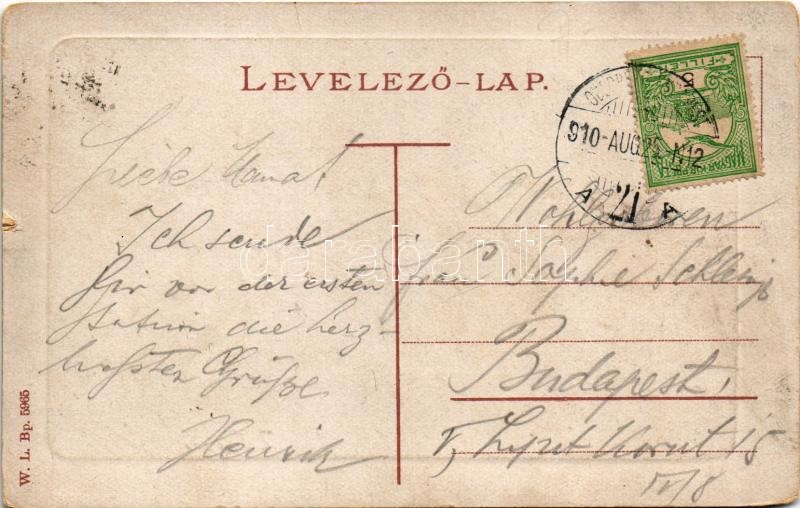 LEVELEZŐ-LAP.
Liebe Mama!
Ich sende
Dir von der ersten
Station die herz-
lichsten Grüße
Henrik
Wohlgeboren
Frau Sophie
Budapest.
V, Lipót körut 15
IV/8
910-AUG. N12
A 21 A
5
FILLÉR
MAGYAR KIR. POSTA
W. L. Bp. 5965
darabanth.com